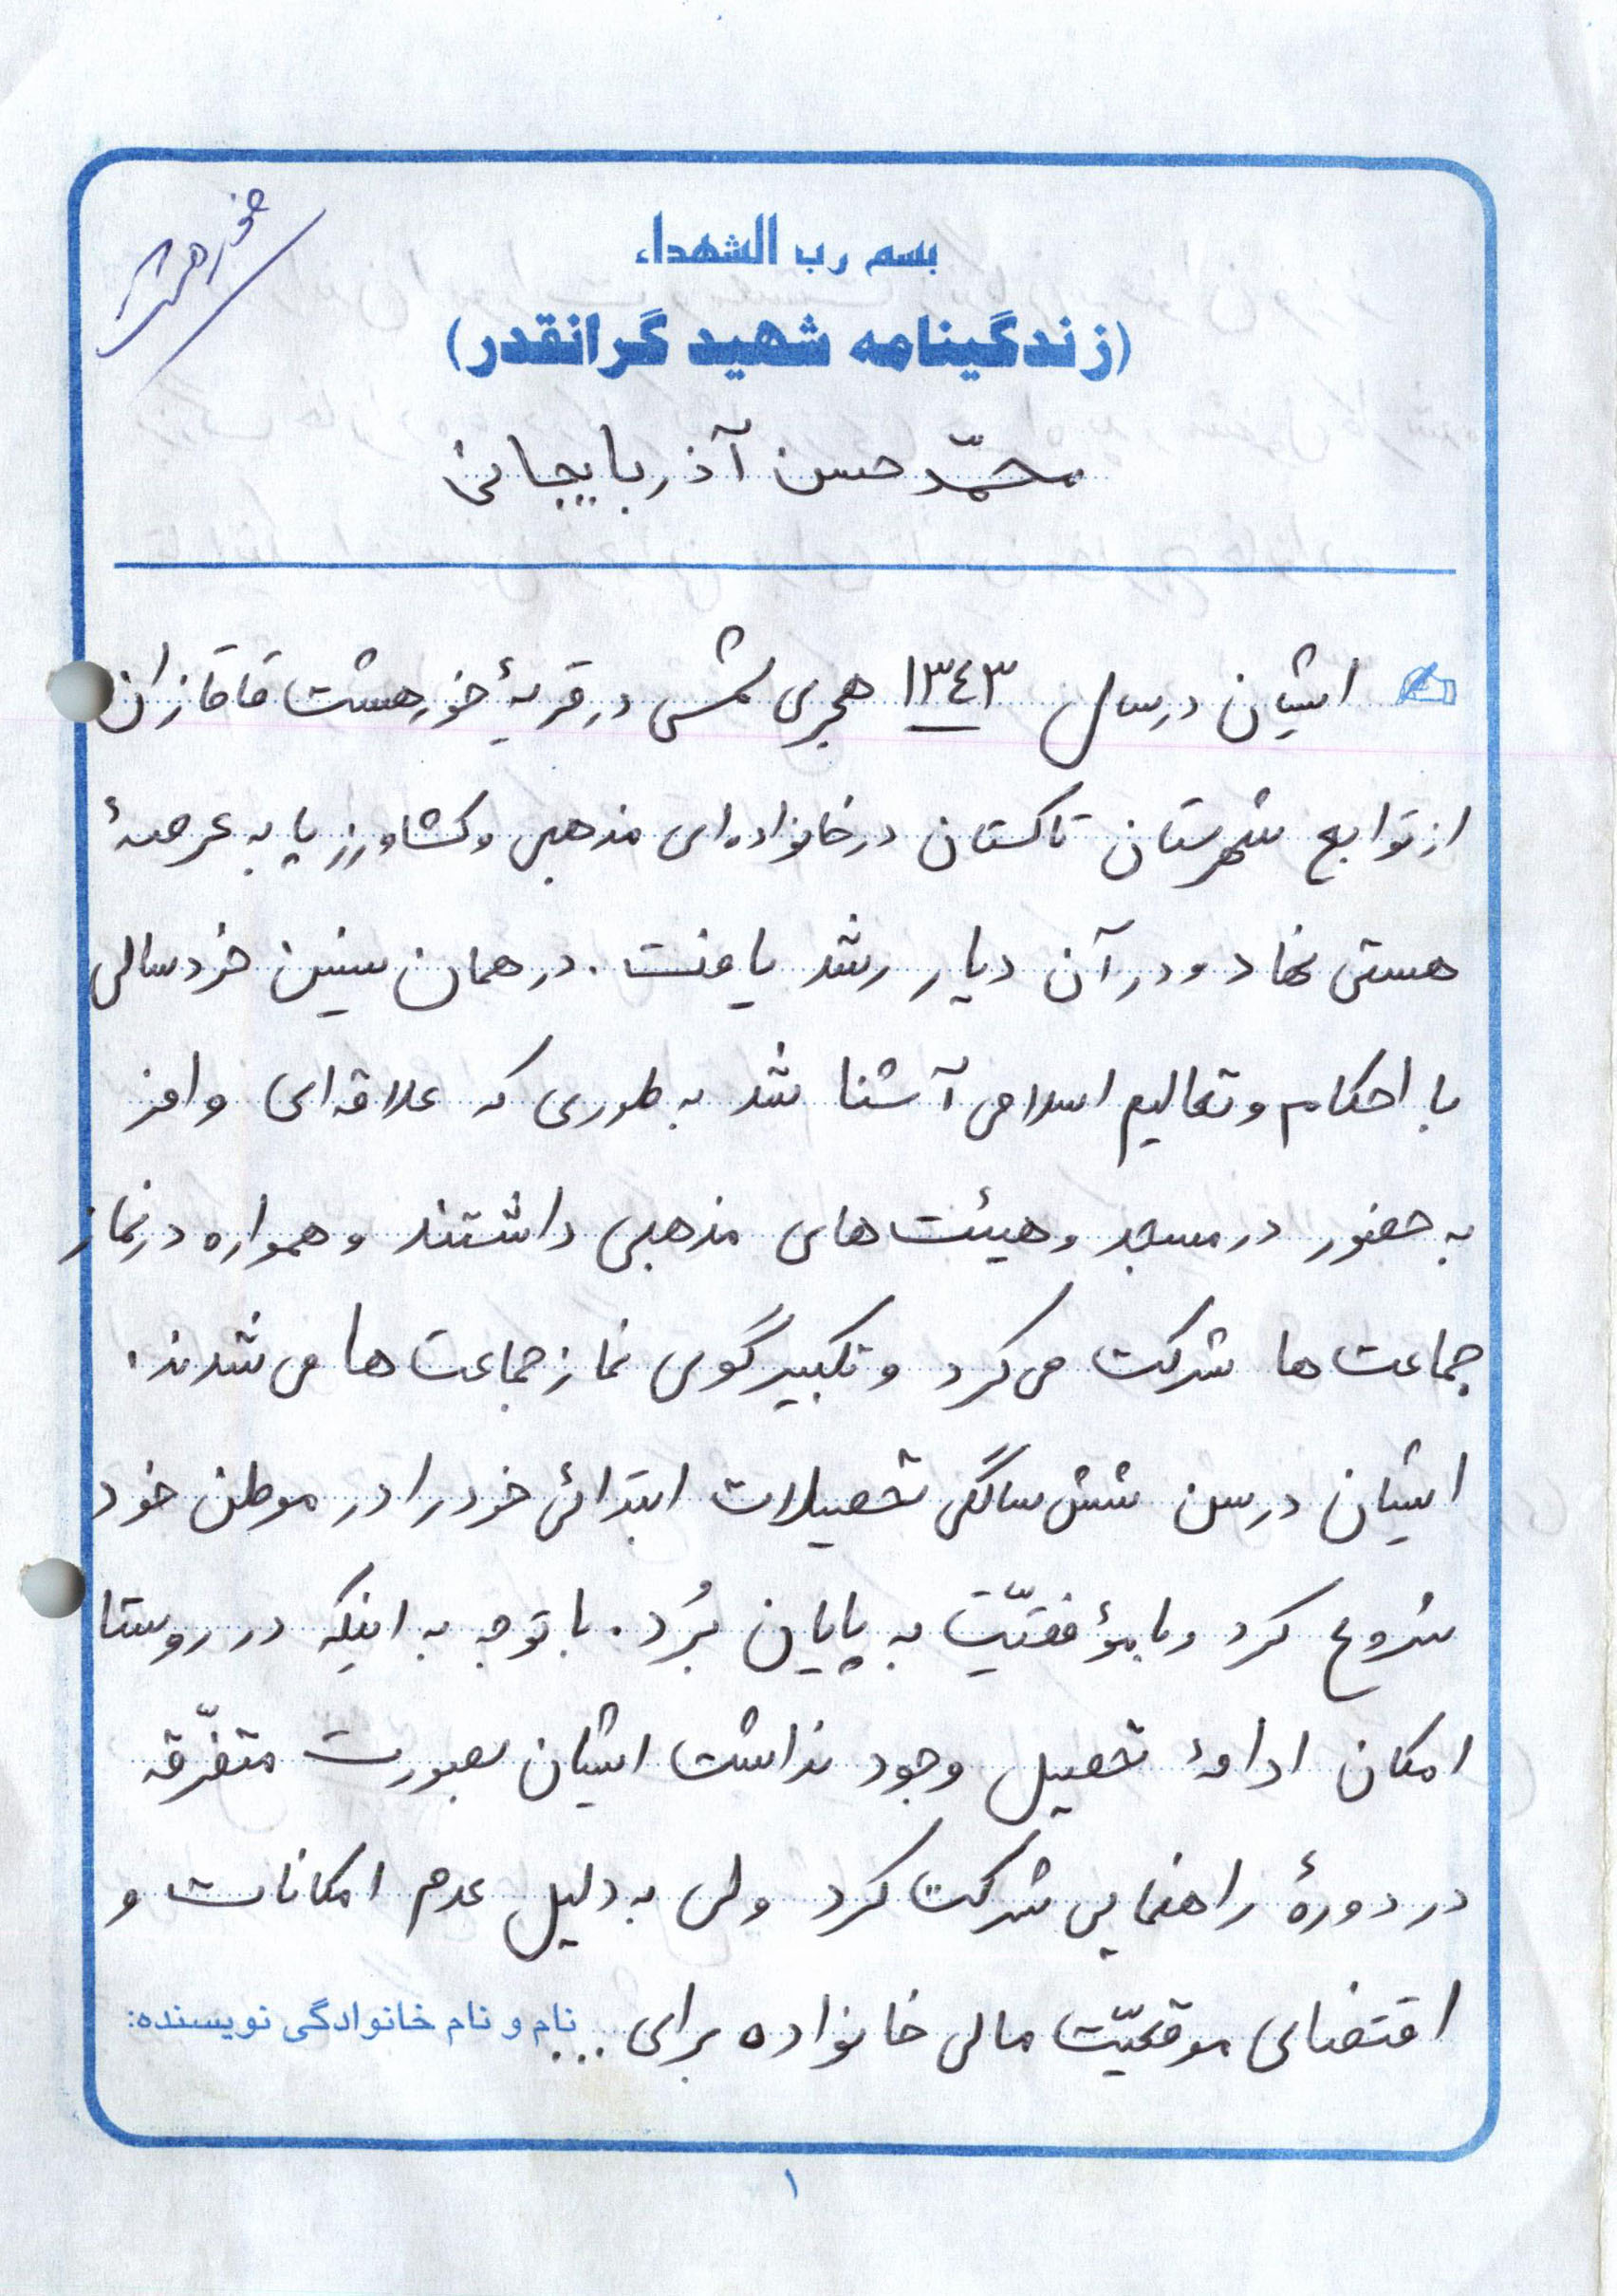 خورهشت
بسم رب الشهداء
(زندگینامه شهید گرانقدر)
محمّد حسن آذربایجانی
ایشان در سال ۱۳٤۳ هجری شمسی در قریهٔ خورهشت قاقازان
از توابع شهرستان تاکستان در خانواده‌ای مذهبی و کشاورز پا به عرصهٔ
هستی نهاد و در آن دیار رشد یافت. در همان سنین خردسالی
با احکام و تعالیم اسلامی آشنا شد به طوری که علاقه‌ای وافر
به حضور در مسجد و هیئت‌های مذهبی داشتند و همواره در نماز
جماعت‌ها شرکت می‌کرد و تکبیرگوی نماز جماعت‌ها می‌شدند.
ایشان در سن شش سالگی تحصیلات ابتدائی خود را در موطن خود
شروع کرد و با مؤفقیّت به پایان بُرد. با توجه به اینکه در روستا
امکان ادامهٔ تحصیل وجود نداشت ایشان بصورت متفرّقه
در دورهٔ راهنمایی شرکت کرد ولی به دلیل عدم امکانات و
اقتضای موقعیّت مالی خانواده برای ... نام و نام خانوادگی نویسنده:
۱